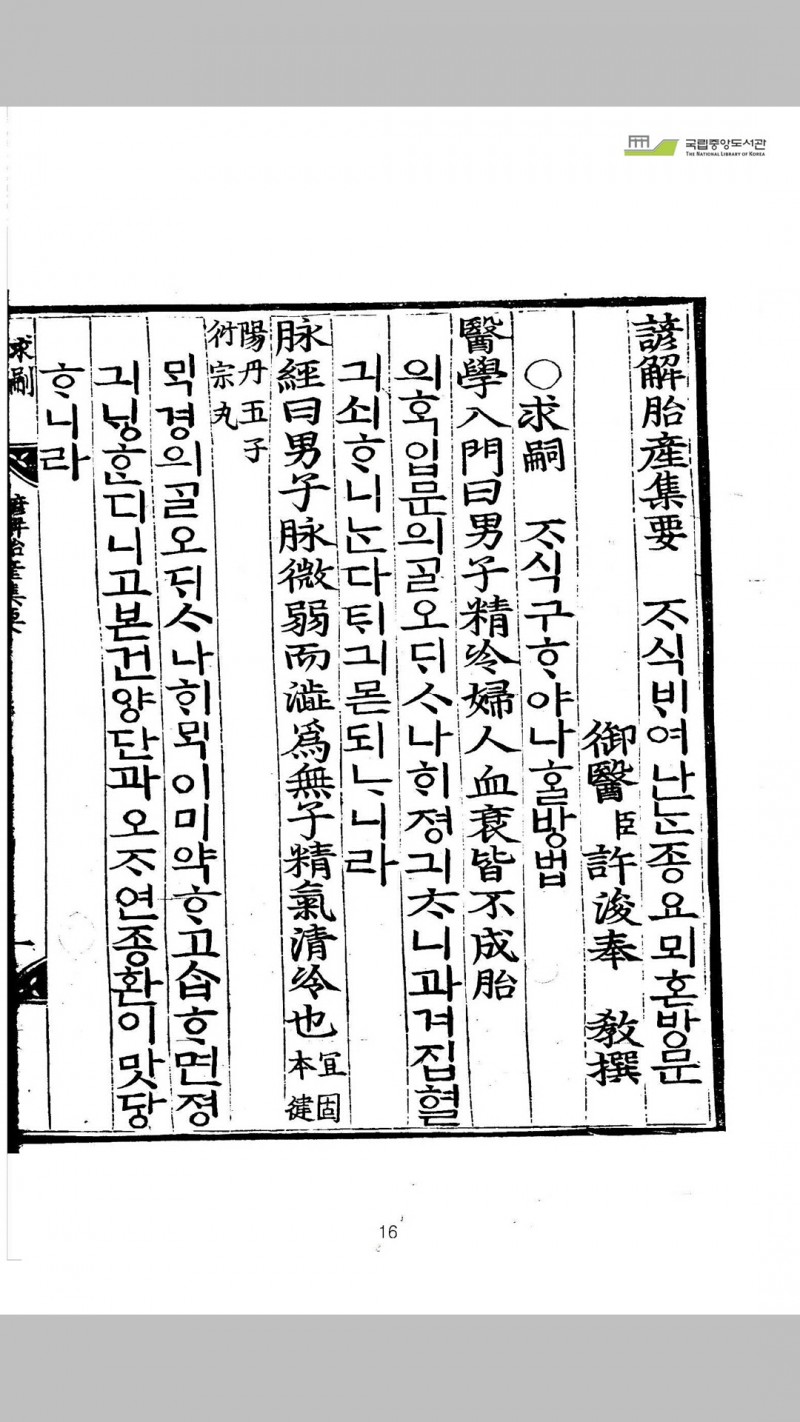 국립중앙도서관
THE NATIONAL LIBRARY OF KOREA
諺解胎産集要 ᄌᆞ식ᄇᆡ여난ᄂᆞᆫ종요뫼혼방문
御醫臣許浚奉 教撰
○求嗣 ᄌᆞ식구ᄒᆞ야나흘방법
醫學入門曰男子精冷婦人血衰皆不成胎
의ᄒᆞᆨ입문의ᄀᆞᆯ오ᄃᆡᄉᆞ나ᄒᆡ졍긔ᄎᆞ니과겨집혈
긔쇠ᄒᆞ니ᄂᆞᆫ다ᄐᆡ긔몯되ᄂᆞ니라
脉經曰男子脉微弱而澁爲無子精氣清冷也宜固
本健
陽丹五子
衍宗丸
ᄆᆡᆨ경의ᄀᆞᆯ오ᄃᆡᄉᆞ나ᄒᆡᄆᆡᆨ이미약ᄒᆞ고습ᄒᆞ면졍
긔닝ᄒᆞᆫ디니고본건양단과오ᄌᆞ연종환이맛당
ᄒᆞ니라
求嗣
諺解胎産集要
一
16